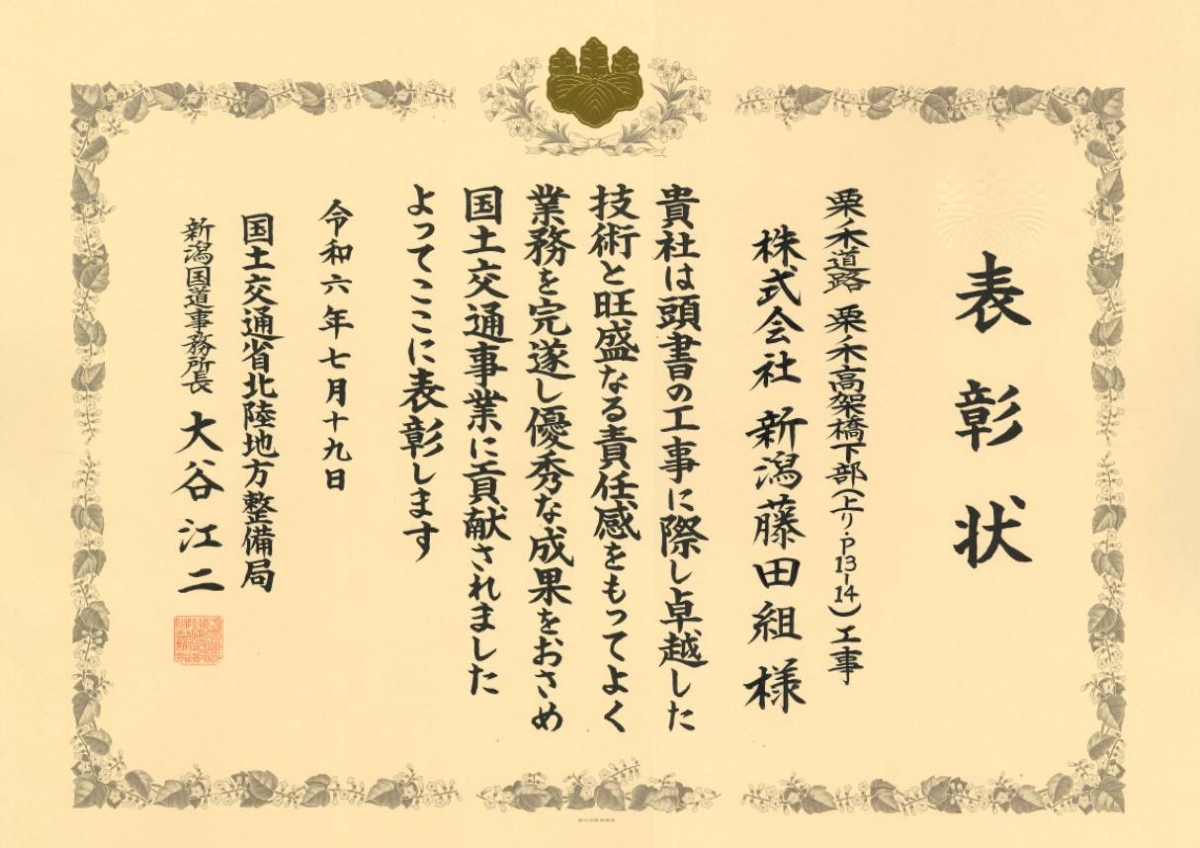 表彰状
栗ノ木道路 栗ノ木高架橋下部(上り・P13-14)工事
株式会社 新潟藤田組 様
貴社は頭書の工事に際し卓越した
技術と旺盛なる責任感をもってよく
業務を完遂し優秀な成果をおさめ
国土交通事業に貢献されました
よってここに表彰します
令和六年七月十九日
国土交通省北陸地方整備局
新潟国道事務所長 大谷江二